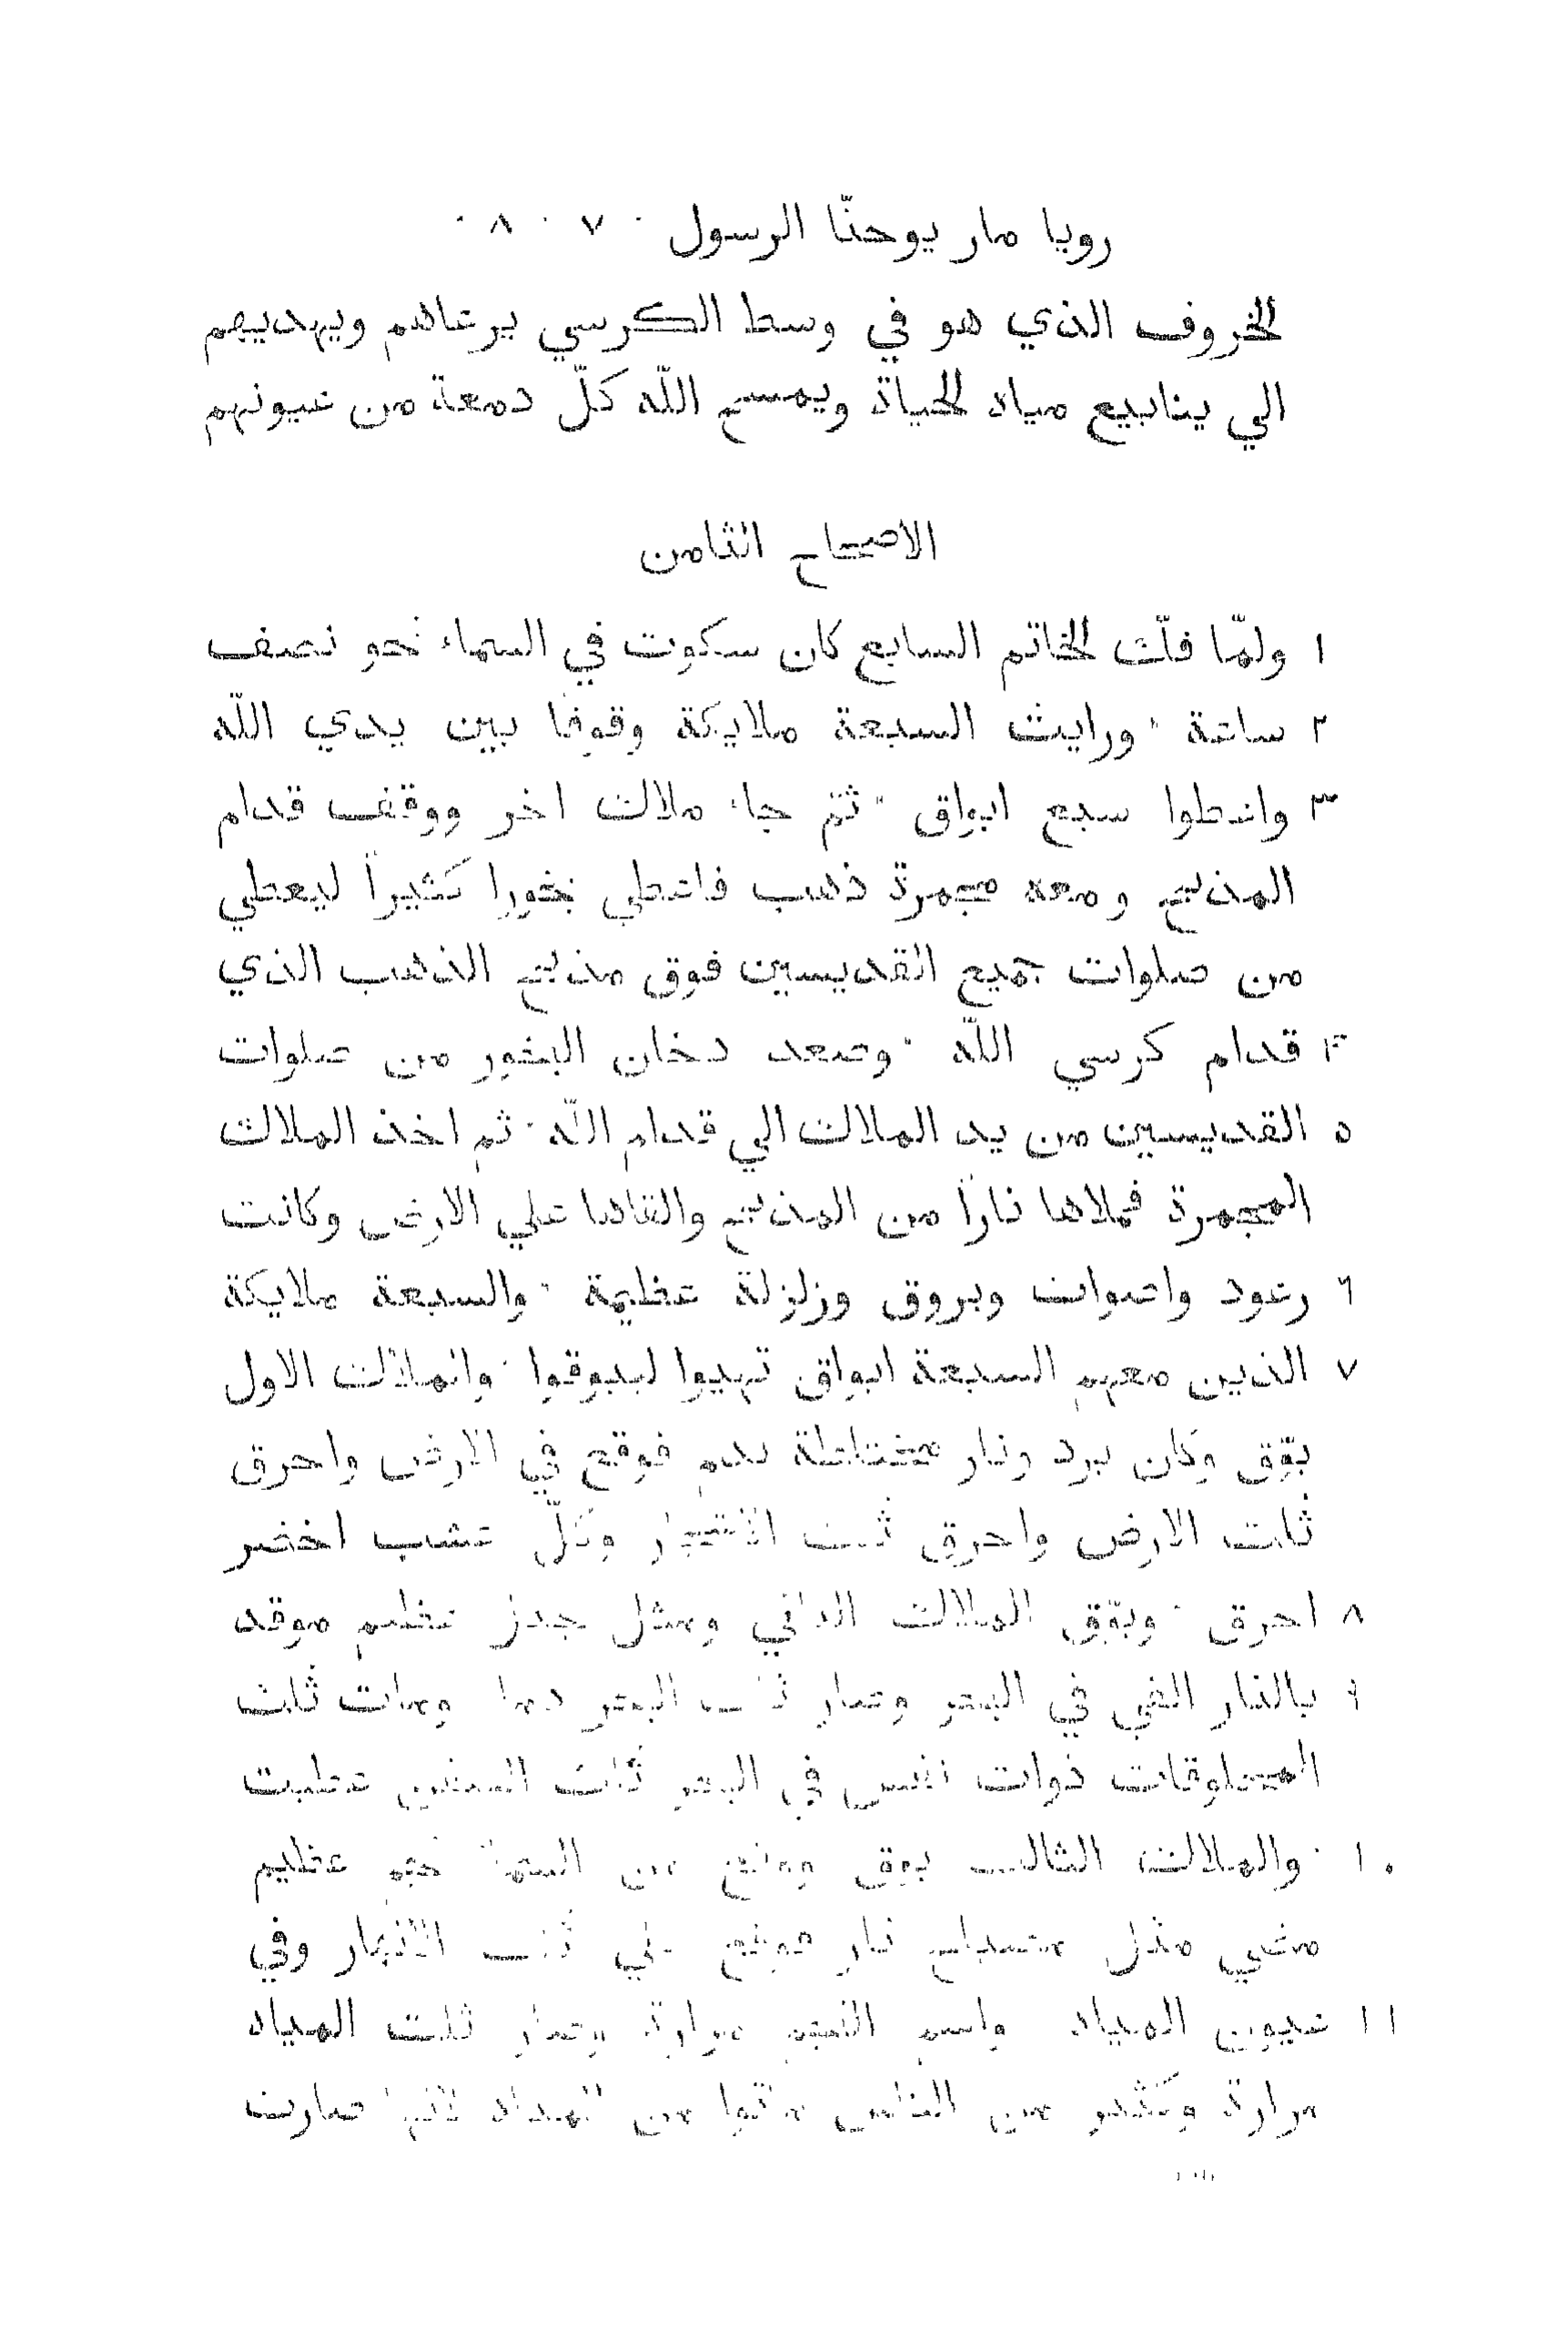 رويا مار يوحنّا الرسول ٠ ٧ ٠ ٨ ٠
الخروف الذي هو في وسط الكرسي يرعاهم ويهدييهم
الي ينابيع مياه الحياة ويمسح اللّه كلّ دمعة من عيونهم
الاصحاح الثامن
١ ولمّا فكّ الخاتم السابع كان سكوت في السماء نحو نصف
٢ ساعة ٠ ورايت السبعة ملايكة وقوفا بين يدي اللّه
٣ واعطوا سبع ابواق ٠ ثمّ جاء ملاك اخر ووقف قدام
المذبح ومعه مجمرة ذهب فاعطي بخورا كثيراً ليعطي
من صلوات جميع القديسين فوق مذبح الذهب الذي
٤ قدام كرسي اللّه ٠ وصعد دخان البخور من صلوات
٥ القديسين من يد الملاك الي قدام اللّه ٠ ثم اخذ الملاك
المجمرة فملاها ناراً من المذبح والقاها علي الارض وكانت
٦ رعود واصوات وبروق وزلزلة عظيمة ٠ والسبعة ملايكة
٧ الذين معهم السبعة ابواق تهيوا ليبوقوا ٠ والملاك الاول
بوّق وكان برد ونار مختلطة بدم فوقع في الارض واحرق
ثلث الارض واحرق ثلث الاشجار وكلّ عشب اخضر
٨ احرق ٠ وبوّق الملاك الثاني ومثل جبل عظيم موقد
٩ بالنار القي في البحر وصار ثلث البحر دما ومات ثلث
المخلوقات ذوات نفس في البحر ثلث السفن عطبت
١٠ ٠ والملاك الثالث بوق ووقع من السما نجم عظيم
مضي مثل مصباح نار فوقع علي ثلث الانهار وفي
١١ عيون المياه واسم النجم مرارة وصار ثلث المياه
مرارة وكثير من الناس ماتوا من المياه لانها صارت